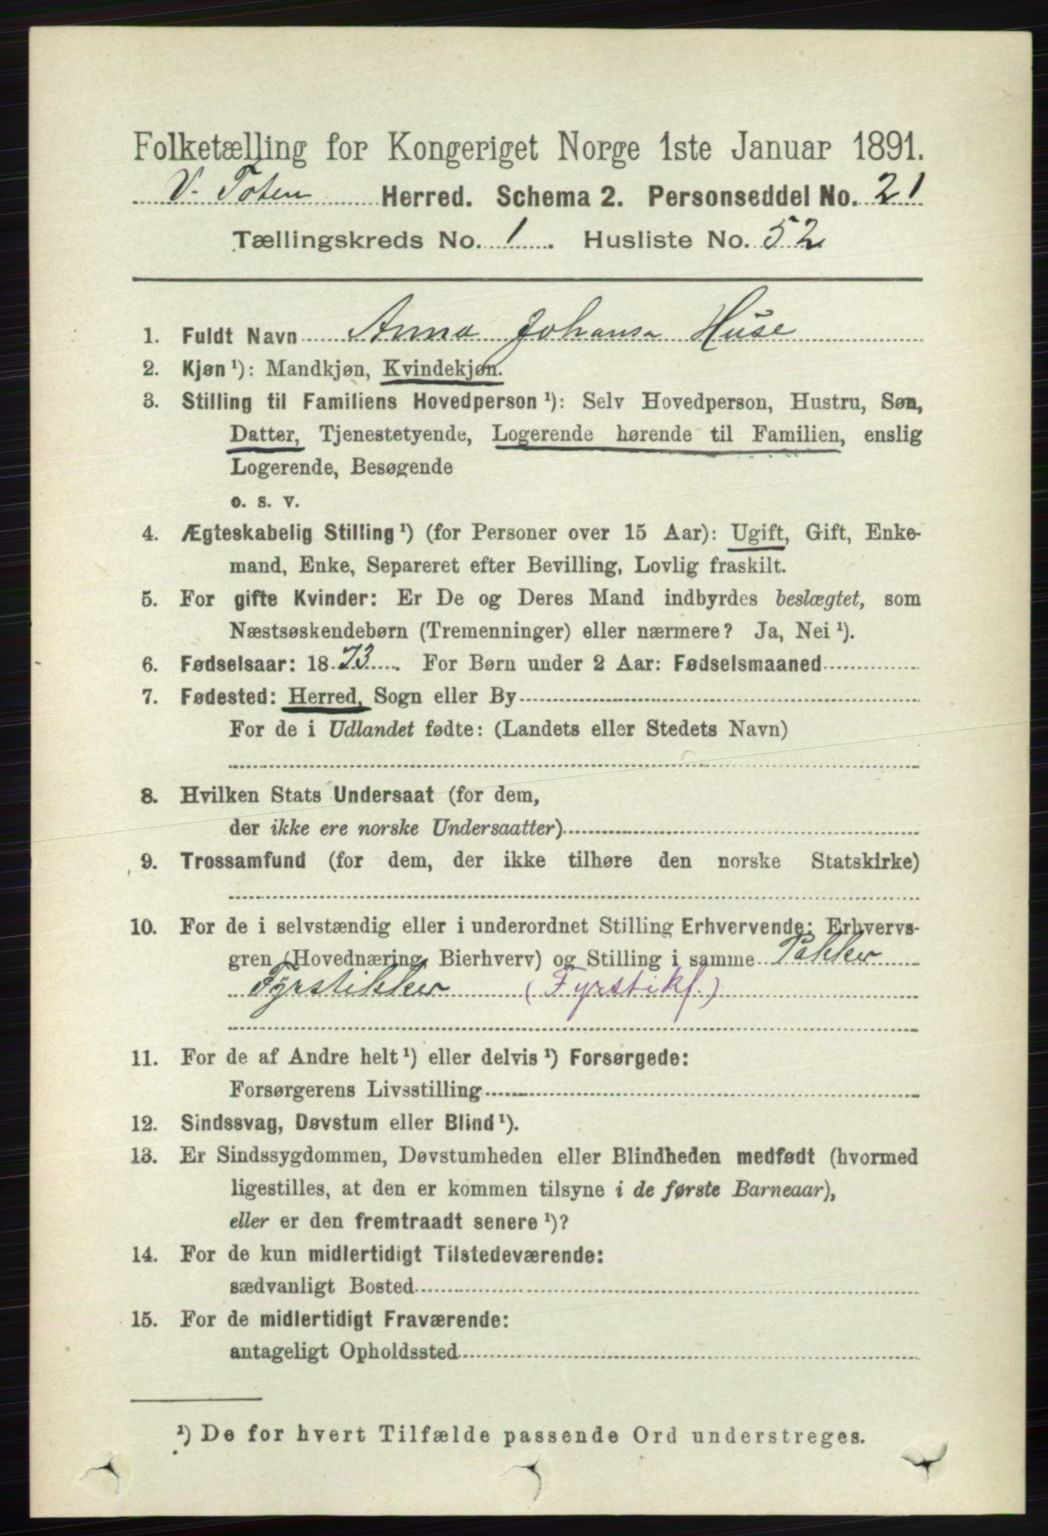 Folketælling for Kongeriget Norge 1ste Januar 1891.
V. Toten Herred. Schema 2. Personseddel No. 21
Tællingskreds No. 1. Husliste No. 52
1. Fuldt Navn Anna Johansa Huse
2. Kjøn ¹): Mandkjøn, Kvindekjøn.
3. Stilling til Familiens Hovedperson ¹): Selv Hovedperson, Hustru, Søn,
Datter, Tjenestetyende, Logerende hørende til Familien, enslig
Logerende, Besøgende
o. s. v.
4. Ægteskabelig Stilling ¹) (for Personer over 15 Aar): Ugift, Gift, Enke-
mand, Enke, Separeret efter Bevilling, Lovlig fraskilt.
5. For gifte Kvinder: Er De og Deres Mand indbyrdes beslægtet, som
Næstsøskendebørn (Tremenninger) eller nærmere? Ja, Nei ¹).
6. Fødselsaar: 1873. For Børn under 2 Aar: Fødselsmaaned
7. Fødested: Herred, Sogn eller By
For de i Udlandet fødte: (Landets eller Stedets Navn)
8. Hvilken Stats Undersaat (for dem,
der ikke ere norske Undersaatter)
9. Trossamfund (for dem, der ikke tilhøre den norske Statskirke)
10. For de i selvstændig eller i underordnet Stilling Erhvervende: Erhvervs-
gren (Hovednæring, Bierhverv) og Stilling i samme Pakker
Fyrstikker (Fyrstikf.)
11. For de af Andre helt ¹) eller delvis ¹) Forsørgede:
Forsørgerens Livsstilling
12. Sindssvag, Døvstum eller Blind ¹).
13. Er Sindssygdommen, Døvstumheden eller Blindheden medfødt (hvormed
ligestilles, at den er kommen tilsyne i de første Barneaar),
eller er den fremtraadt senere ¹)?
14. For de kun midlertidigt Tilstedeværende:
sædvanligt Bosted
15. For de midlertidigt Fraværende:
antageligt Opholdssted
¹) De for hvert Tilfælde passende Ord understreges.